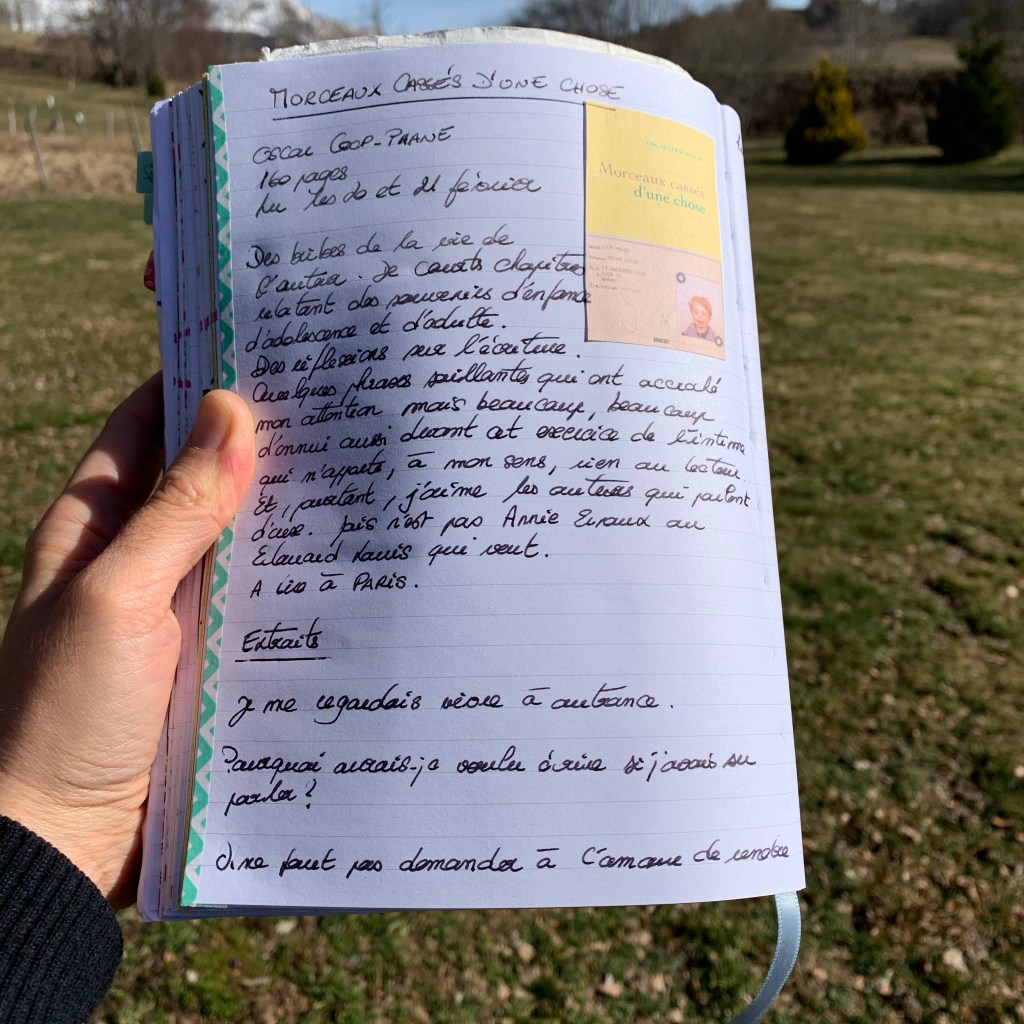 MORCEAUX CASSÉS D'UNE CHOSE
OSCAR COOP-PHANE
160 pages
Lu les 20 et 21 février
Des bribes de la vie de
l'auteur. De courts chapitres
relatant des souvenirs d'enfance
d'adolescence et d'adulte.
Des réflexions sur l'écriture.
Quelques phrases saillantes qui ont accroché
mon attention mais beaucoup, beaucoup
d'ennui aussi devant cet exercice de l'intime
qui n'apporte, à mon sens, rien au lecteur.
Et, pourtant, j'aime les auteurs qui parlent
d'eux. Mais n'est pas Annie Ernaux ou
Edouard Louis qui veut.
A lire à PARIS.
Extraits
Je me regardais vivre à outrance.
Pourquoi aurais-je voulu écrire si j'avais su
parler?
Il ne faut pas demander à l'amour de rendre
OSCAR COOP-PHANE
Morceaux cassés
d'une chose
GRASSET